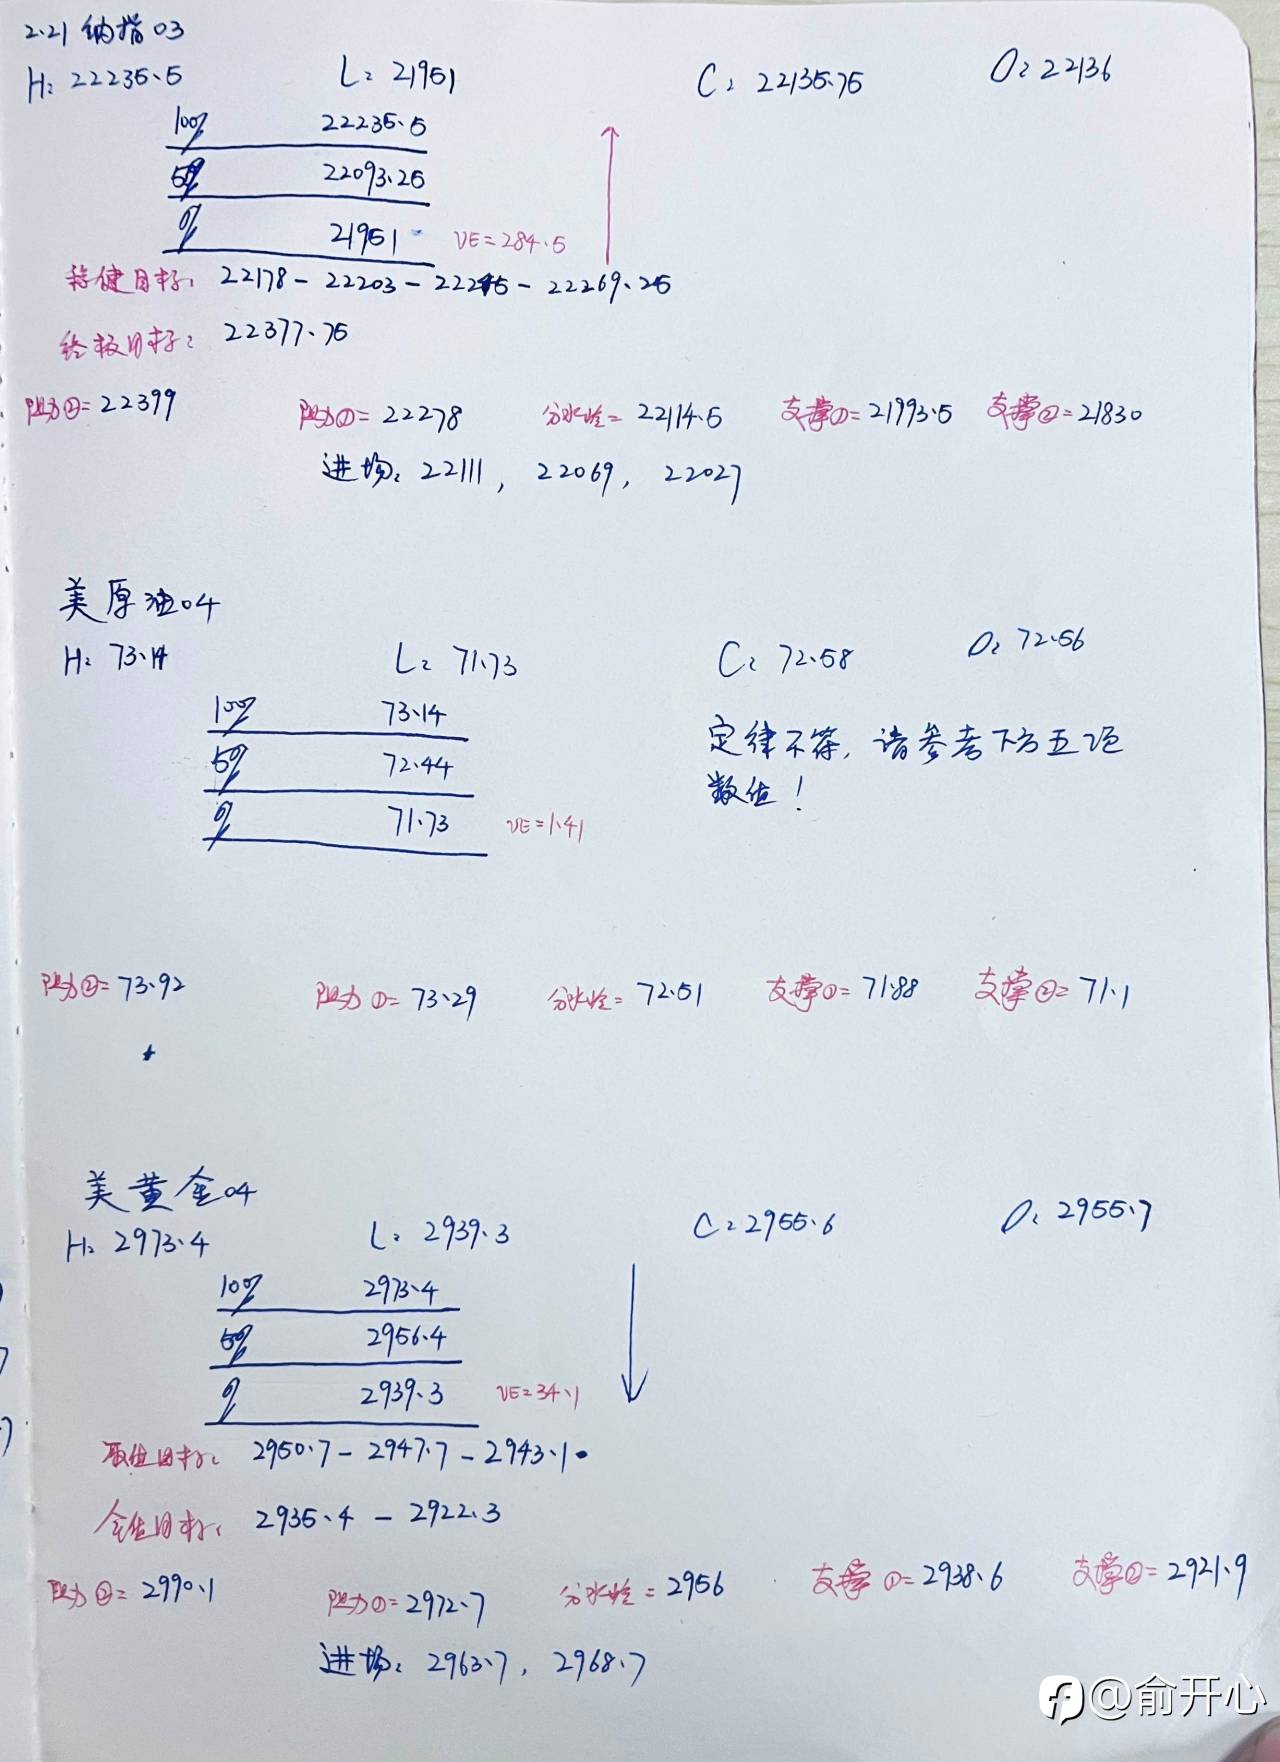 2.21 纳指03
H: 22235.5 L: 21951 C: 22135.75 O: 22136
100% 22235.5
50% 22093.25
0% 21951 VE=284.5
稳健目标: 22178 - 22203 - 22245 - 22269.25
终极目标: 22377.75
阻力②=22399 阻力①=22278 分水岭=22114.5 支撑①=21993.5 支撑②=21830
进场: 22111, 22069, 22027
美原油04
H: 73.14 L: 71.73 C: 72.58 O: 72.56
100% 73.14
50% 72.44
0% 71.73 VE=1.41
定律不符, 请参考下方五项
数值!
阻力②=73.92 阻力①=73.29 分水岭=72.51 支撑①=71.88 支撑②=71.1
美黄金04
H: 2973.4 L: 2939.3 C: 2955.6 O: 2955.7
100% 2973.4
50% 2956.4
0% 2939.3 VE=34.1
目标: 2950.7 - 2947.7 - 2943.1
目标: 2935.4 - 2922.3
阻力②=2990.1 阻力①=2972.7 分水岭=2956 支撑①=2938.6 支撑②=2921.9
进场: 2963.7, 2968.7
@俞开心